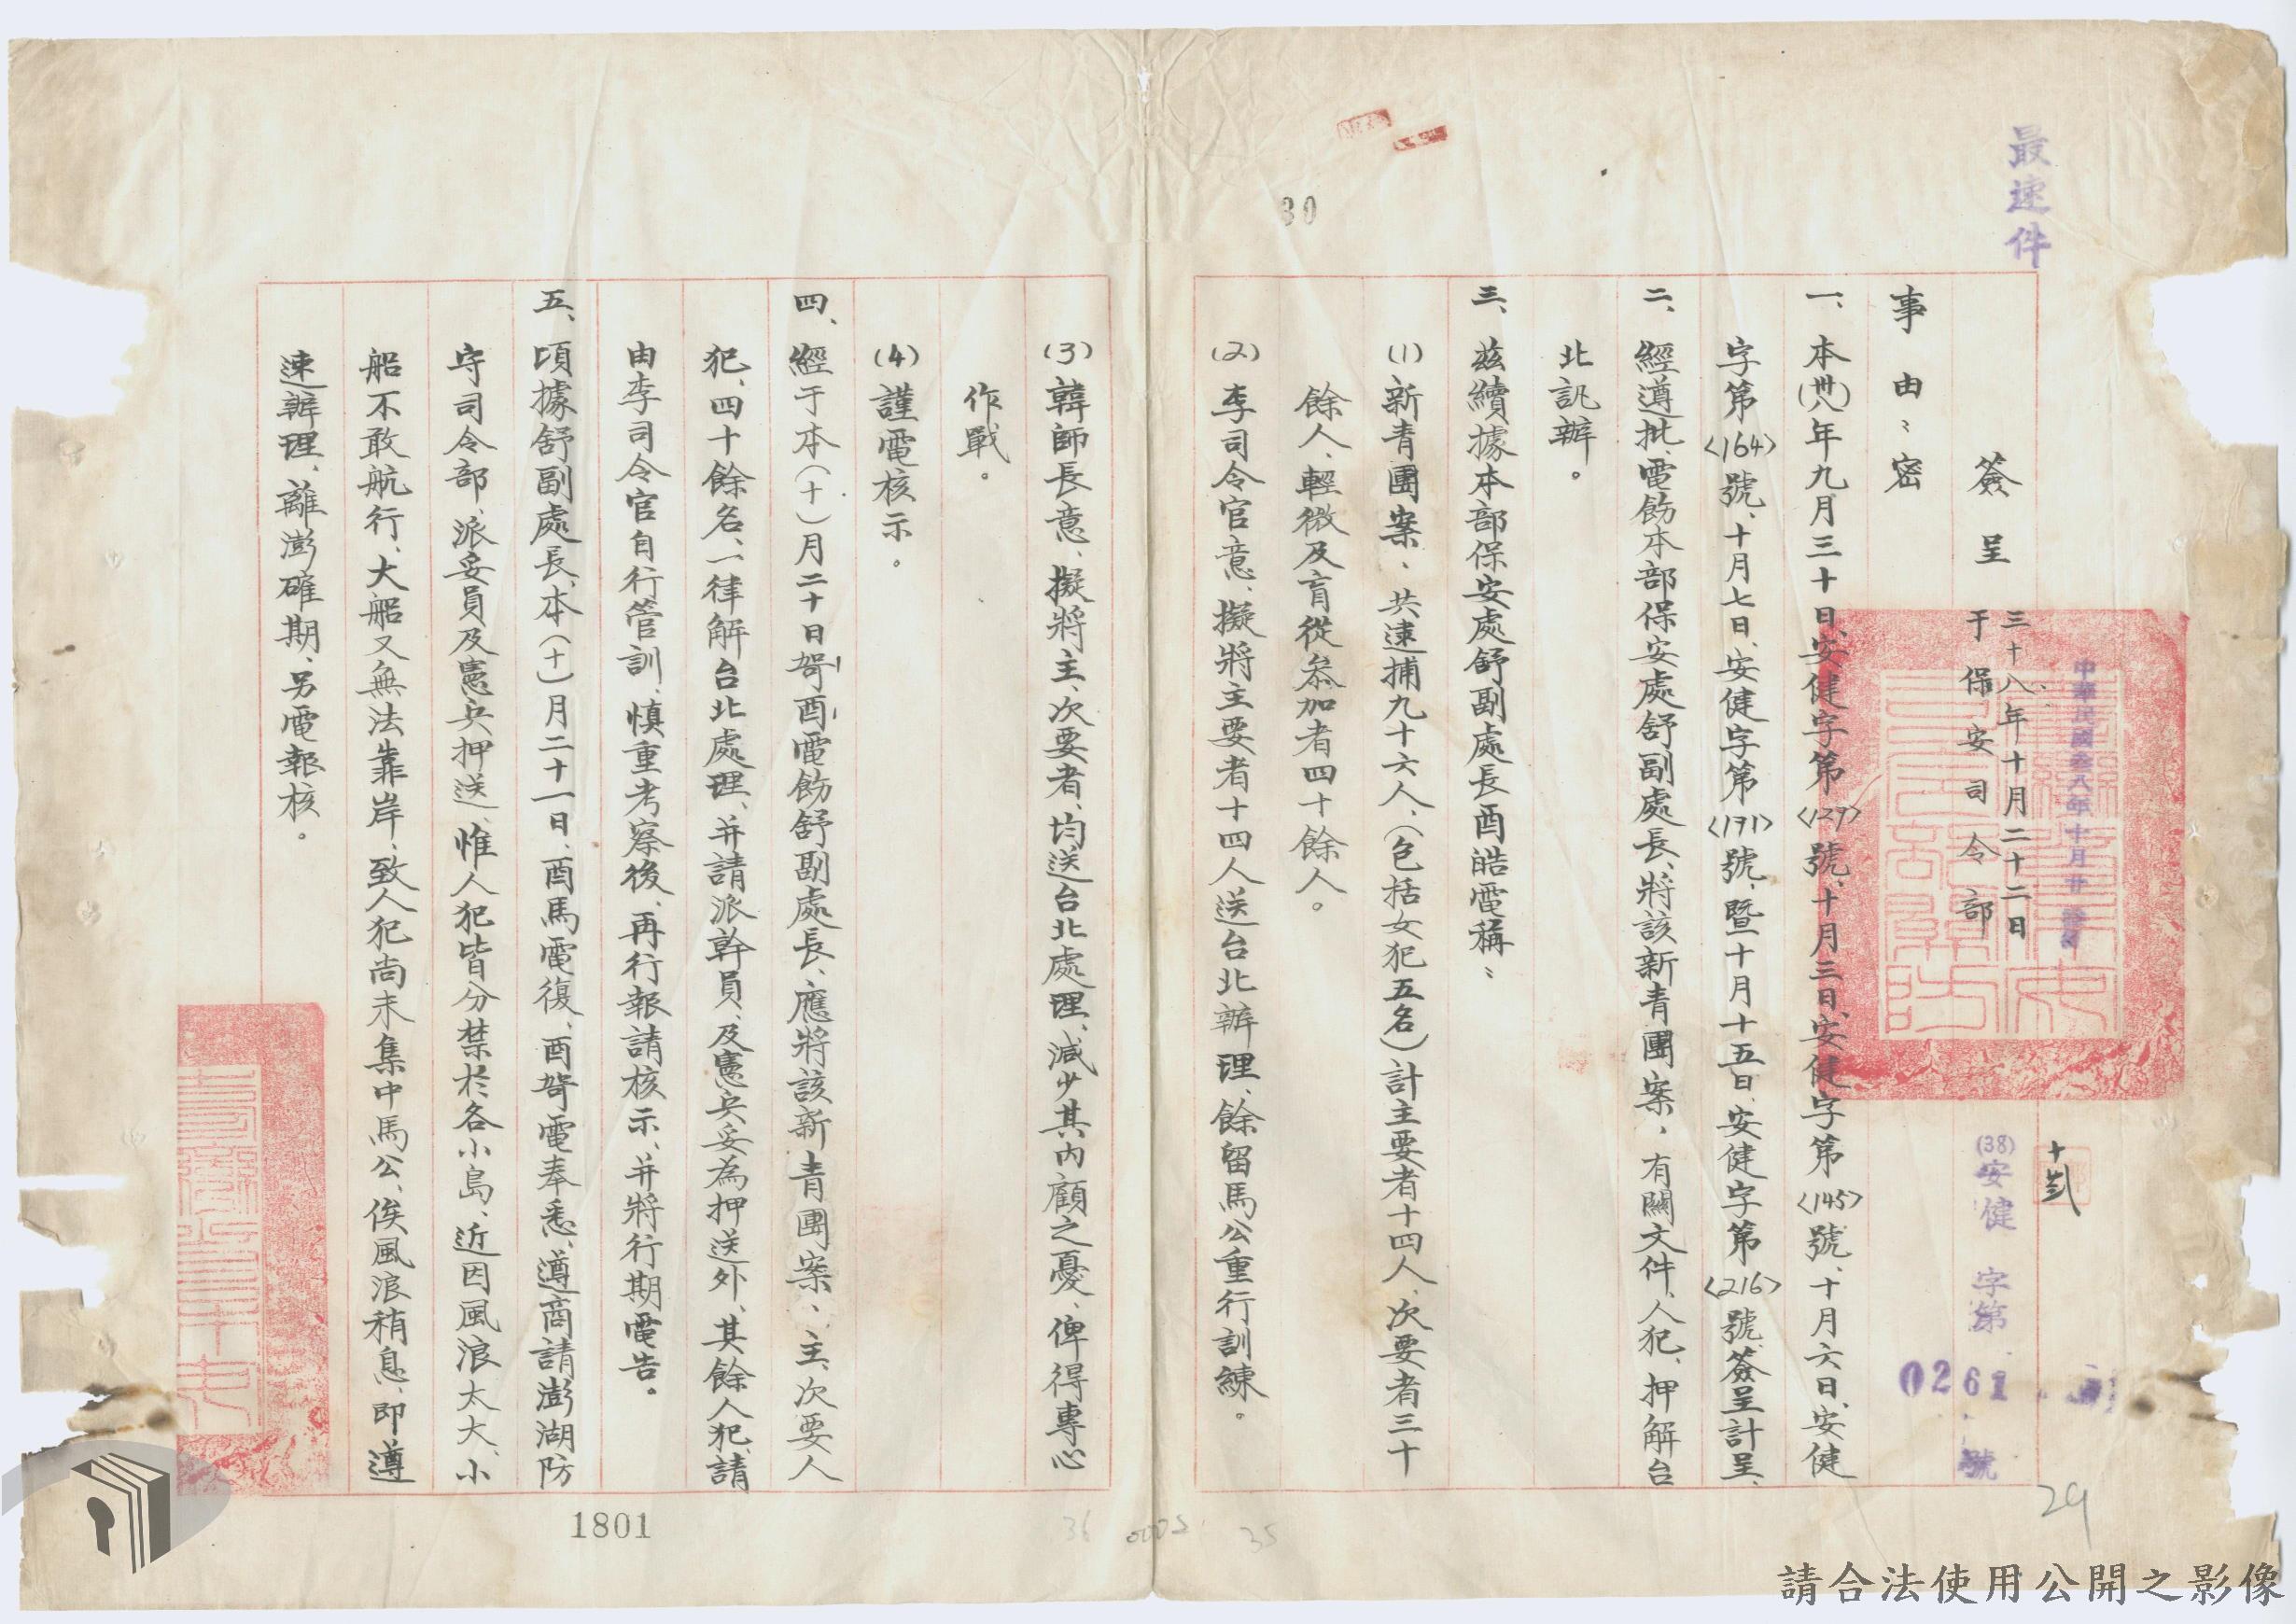 最速件
30
簽呈 三十八年十月二十二日
于保安司令部
中華民國叁八年十月廿
(38)安健字第0261號
事由：密
一、本(卅八)年九月三十日、安健字第<129>號、十月三日、安健字第<145>號、十月六日、安健
字第<164>號、十月七日、安健字第<171>號、暨十月十五日、安健字第<216>號簽呈計呈、
二、經遵批、電飭本部保安處舒副處長、將該新青團案，有關文件、人犯、押解台
北訊辦。
三、茲續據本部保安處舒副處長酉皓電稱：
(1)新青團案、共逮捕九十六人、(包括女犯五名)計主要者十四人、次要者三十
餘人、輕微及盲從叅加者四十餘人。
(2)李司令官意、擬將主要者十四人送台北辦理、餘留馬公重行訓練。
(3)韓師長意、擬將主、次要者、均送台北處理、減少其内顧之憂、俾得專心
作戰。
(4)謹電核示。
四、經于本(十)月二十日哿酉電飭舒副處長、應將該新青團案、主、次要人
犯、四十餘名、一律解台北處理、并請派幹員、及憲兵妥為押送外、其餘人犯、請
由李司令官自行管訓、慎重考察後、再行報請核示、并將行期電告。
五、頃據舒副處長、本(十)月二十一日、酉馬電復、酉哿電奉悉、遵商請澎湖防
守司令部、派妥員及憲兵押送、惟人犯皆分禁於各小島、近因風浪太大、小
船不敢航行、大船又無法靠岸、致人犯尚未集中馬公、俟風浪稍息、即遵
速辦理、離澎確期、另電報核。
1801
36
0002
35
29
請合法使用公開之影像